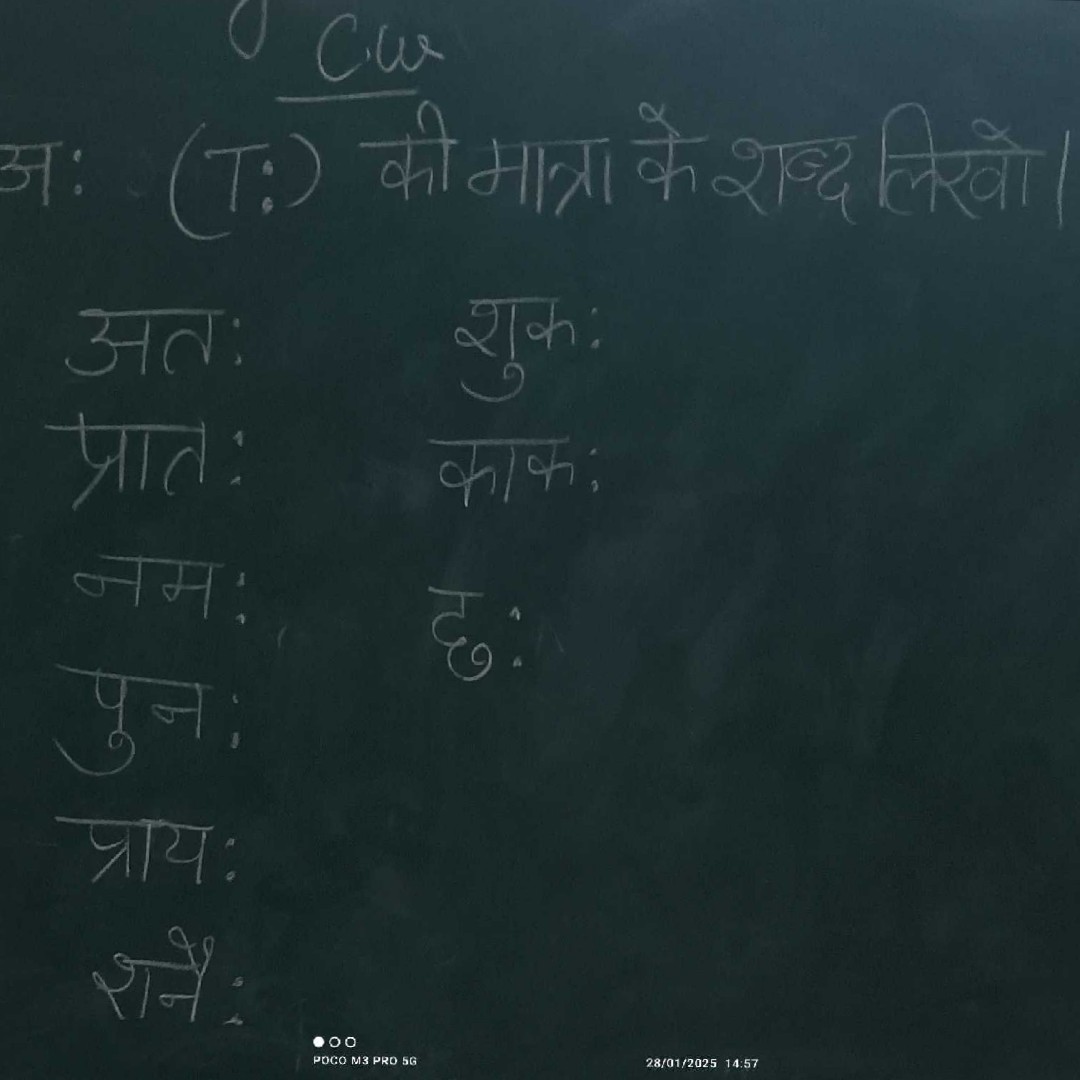 CW
अः (ाः) की मात्रा के शब्द लिखो।
अतः
प्रातः
नमः
पुनः
प्रायः
शनैः
शुकः
काकः
छः
POCO M3 PRO 5G
28/01/2025 14:57